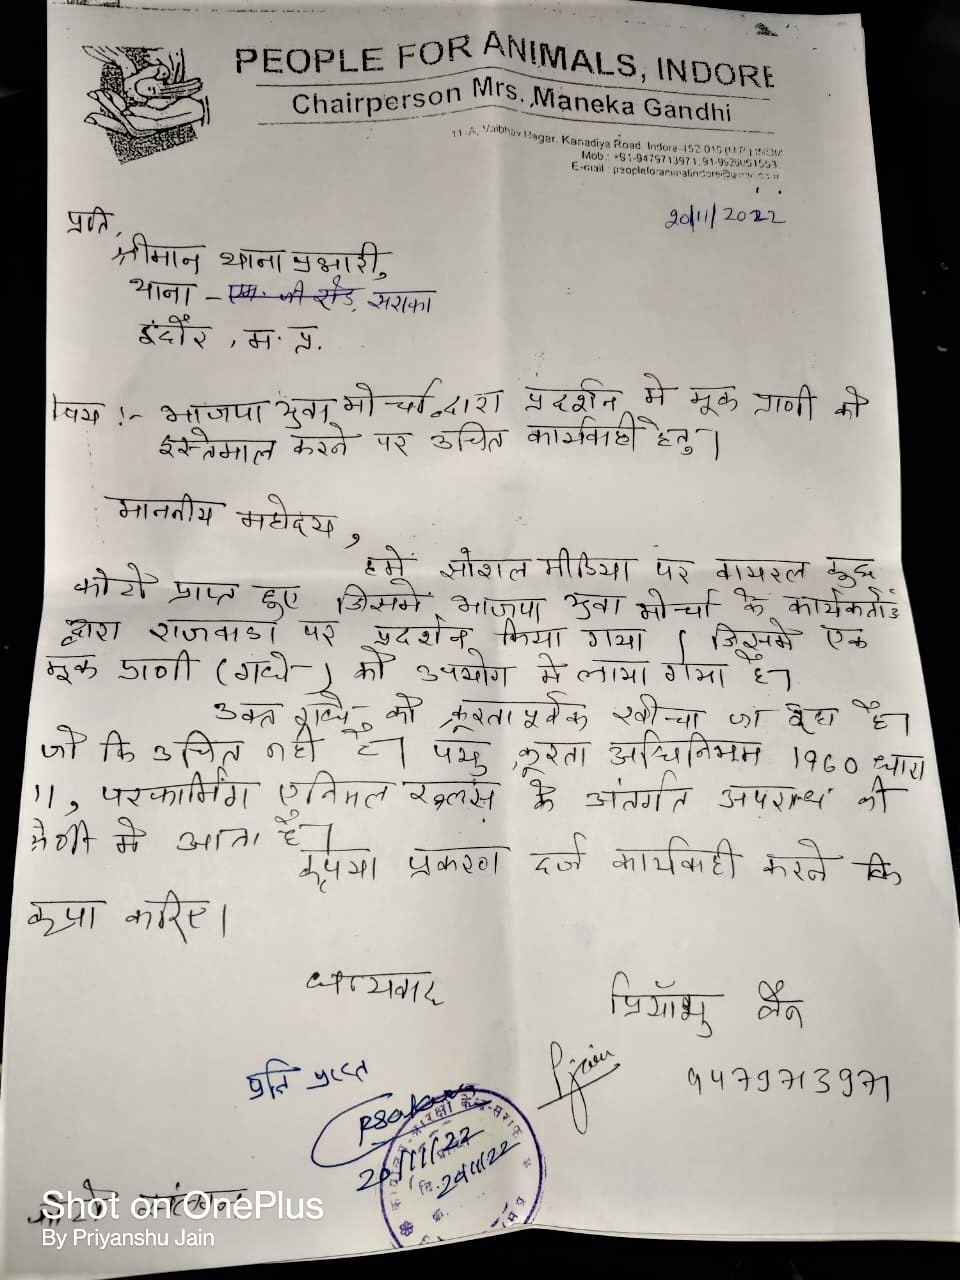 PEOPLE FOR ANIMALS, INDORE
Chairperson Mrs. Maneka Gandhi
11-A, Vaibhav Nagar, Kanadiya Road, Indore-452 016 (M.P.)
Mob.: +91-9479713971, 91-9926051553
E-mail : peopleforanimalindore@
20/11/2022
प्रति,
श्रीमान थाना प्रभारी,
थाना - एम. जी रोड, सराफा
इंदौर, म. प्र.
विषय :- भाजपा युवा मोर्चा द्वारा प्रदर्शन मे मूक प्राणी को
इस्तेमाल करने पर उचित कार्यवाही हेतु।
माननीय महोदय,
हमें सोशल मीडिया पर वायरल कुछ
फोटो प्राप्त हुए जिसमे भाजपा युवा मोर्चा के कार्यकर्ताओं
द्वारा राजवाडा पर प्रदर्शन किया गया। जिसमे एक
मूक प्राणी (गधे) को उपयोग मे लाया गया है।
उक्त गधे को क्रूरतापूर्वक खींचा जा रहा है।
जो कि उचित नहीं है। पशु क्रूरता अधिनियम 1960 धारा
11, परफार्मिंग एनिमल रूल्स के अंतर्गत अपराध की
श्रेणी मे आता है।
कृपया प्रकरण दर्ज कार्यवाही करने कि
कृपा करिए।
धन्यवाद
प्रियाँशु जैन
Pjain
9479713971
प्रति प्राप्त
20/11/22
दि. 20/11/22
Shot on OnePlus
By Priyanshu Jain